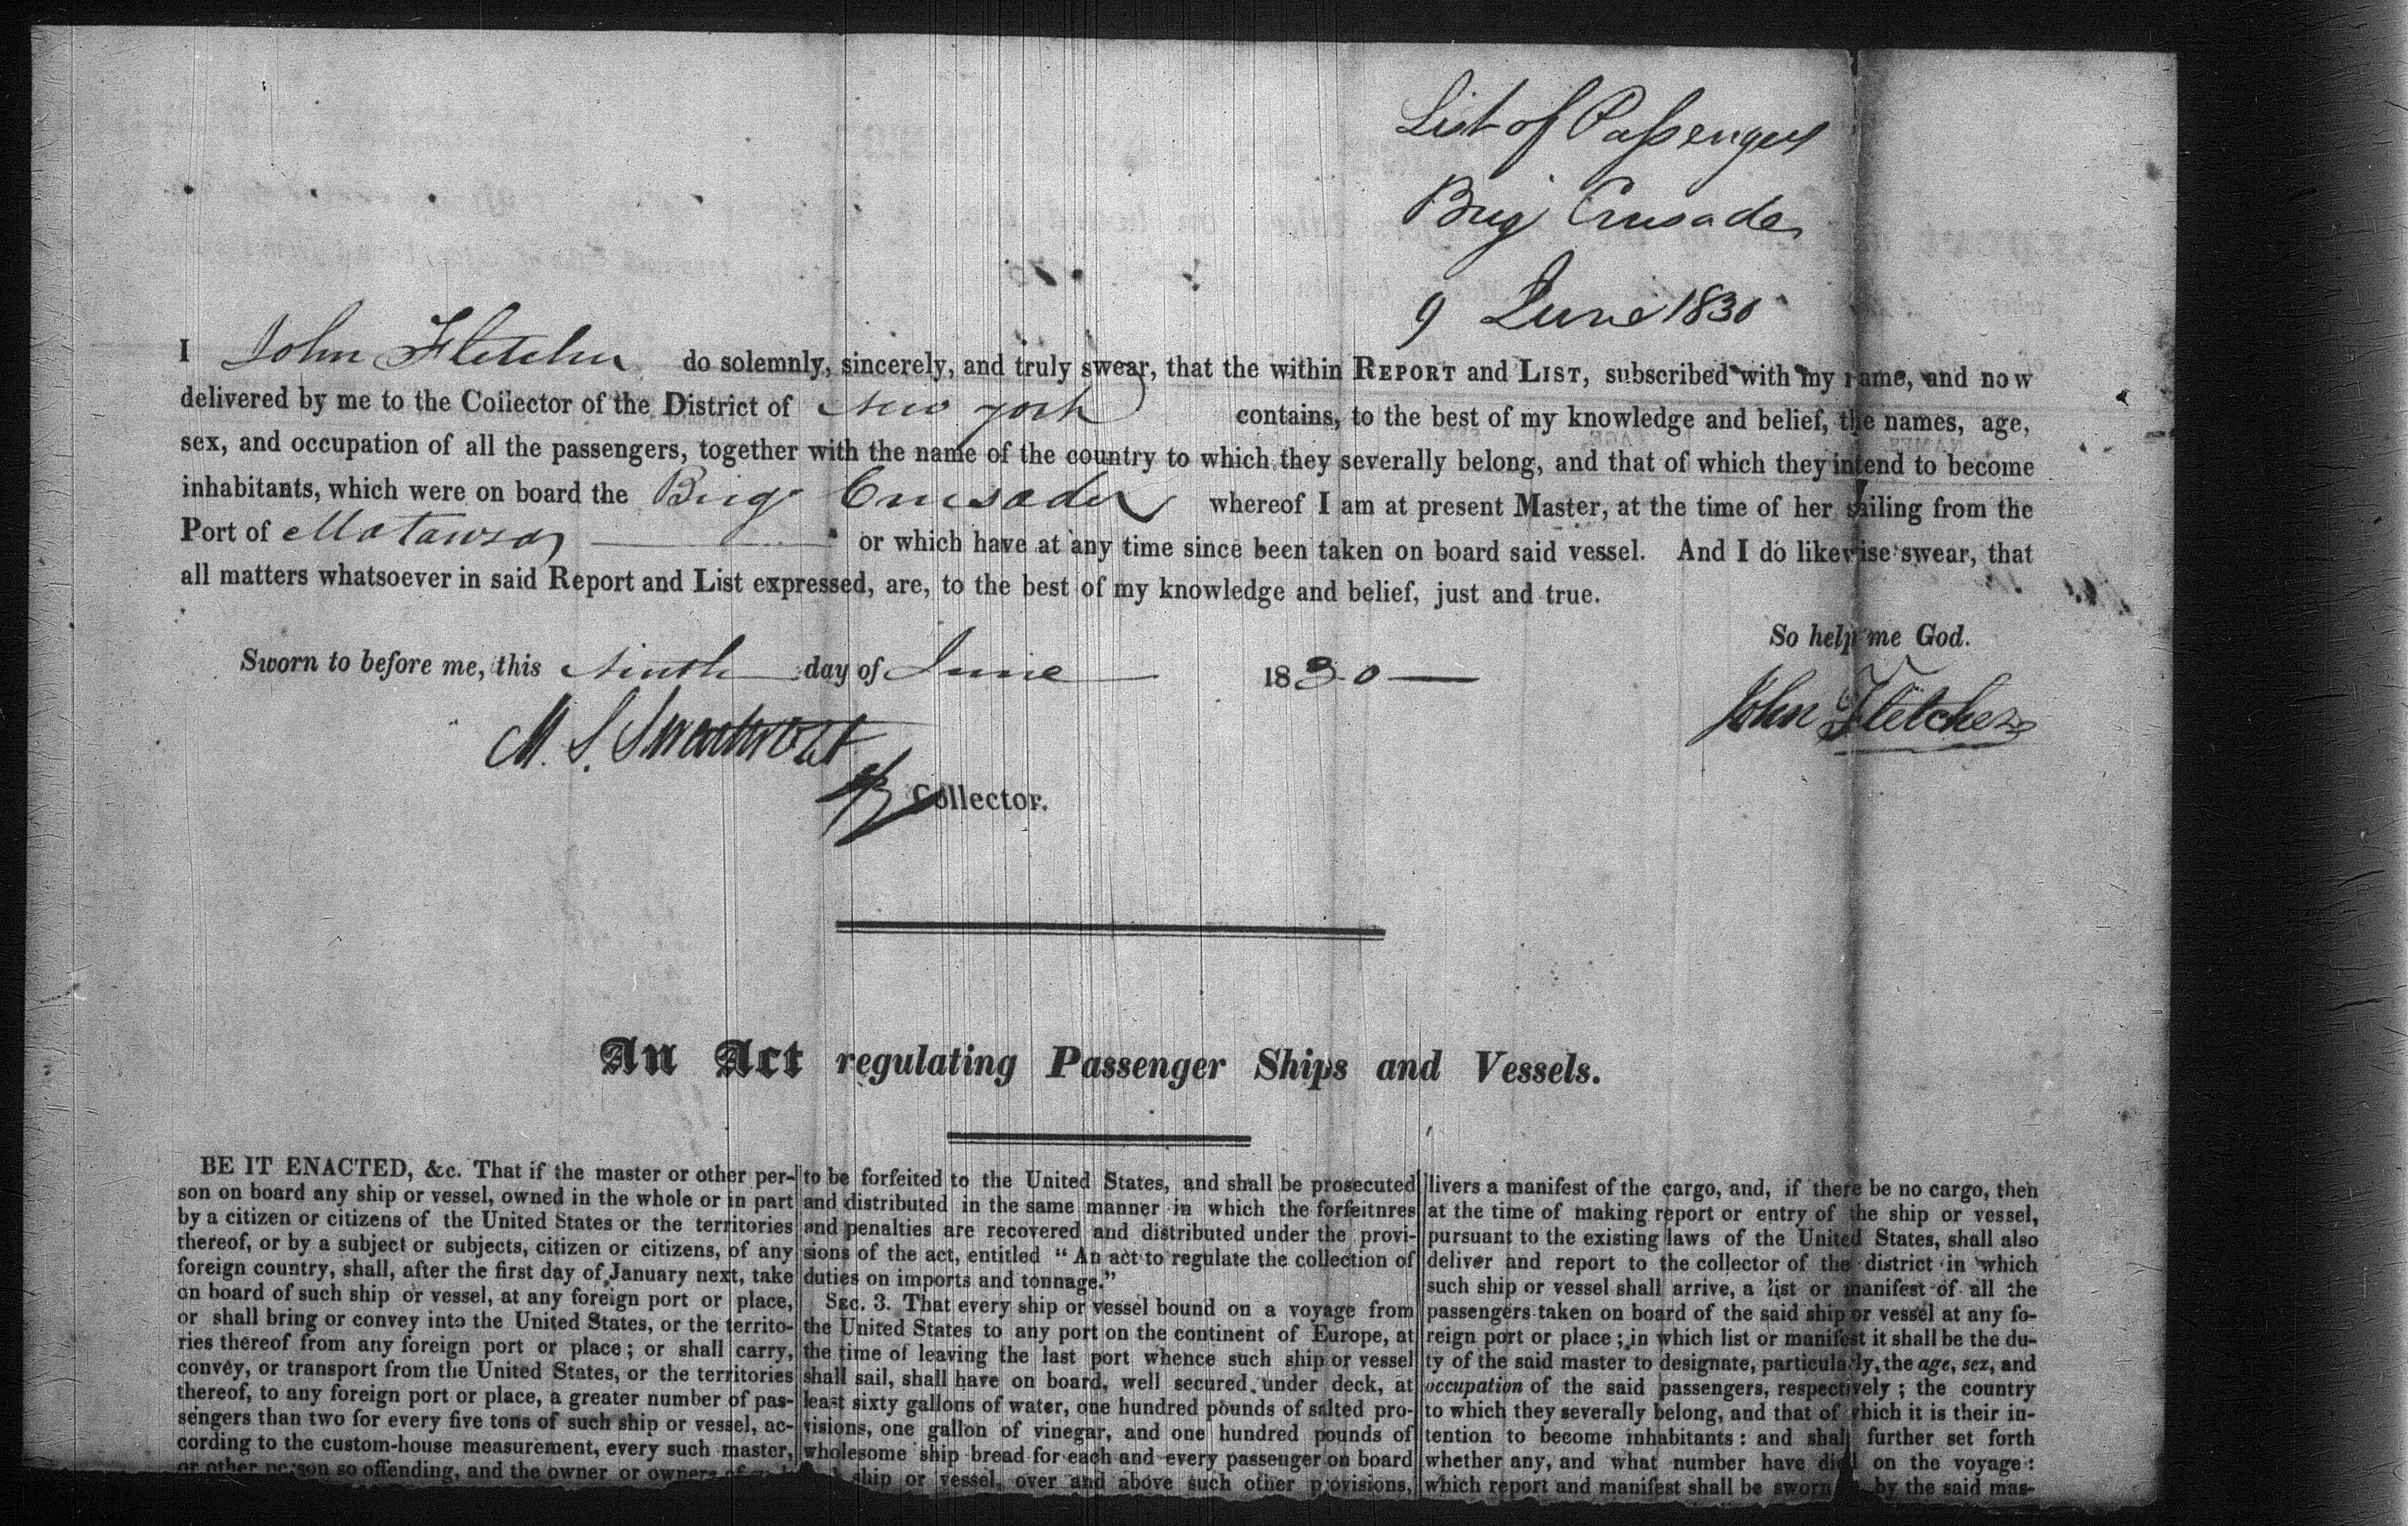 List of Passengers
Brig Crusader
9 June 1830
I John Fletcher do solemnly, sincerely, and truly swear, that the within REPORT and LIST, subscribed with my name, and now
delivered by me to the Collector of the District of New York contains, to the best of my knowledge and belief, the names, age,
sex, and occupation of all the passengers, together with the name of the country to which they severally belong, and that of which they intend to become
inhabitants, which were on board the Brig Crusader whereof I am at present Master, at the time of her sailing from the
Port of Matanzas or which have at any time since been taken on board said vessel. And I do likewise swear, that
all matters whatsoever in said Report and List expressed, are, to the best of my knowledge and belief, just and true.
So help me God.
Sworn to before me, this Ninth day of June 1830
John Fletcher
M. S. Swartwout
Collector.
An Act regulating Passenger Ships and Vessels.
BE IT ENACTED, &c. That if the master or other per-
son on board any ship or vessel, owned in the whole or in part
by a citizen or citizens of the United States or the territories
thereof, or by a subject or subjects, citizen or citizens, of any
foreign country, shall, after the first day of January next, take
on board of such ship or vessel, at any foreign port or place,
or shall bring or convey into the United States, or the territo-
ries thereof from any foreign port or place; or shall carry,
convey, or transport from the United States, or the territories
thereof, to any foreign port or place, a greater number of pas-
sengers than two for every five tons of such ship or vessel, ac-
cording to the custom-house measurement, every such master,
or other person so offending, and the owner or owners of
to be forfeited to the United States, and shall be prosecuted
and distributed in the same manner in which the forfeitnres
and penalties are recovered and distributed under the provi-
sions of the act, entitled "An act to regulate the collection of
duties on imports and tonnage."
SEC. 3. That every ship or vessel bound on a voyage from
the United States to any port on the continent of Europe, at
the time of leaving the last port whence such ship or vessel
shall sail, shall have on board, well secured under deck, at
least sixty gallons of water, one hundred pounds of salted pro-
visions, one gallon of vinegar, and one hundred pounds of
wholesome ship bread for each and every passenger on board
ship or vessel, over and above such other provisions,
livers a manifest of the cargo, and, if there be no cargo, then
at the time of making report or entry of the ship or vessel,
pursuant to the existing laws of the United States, shall also
deliver and report to the collector of the district in which
such ship or vessel shall arrive, a list or manifest of all the
passengers taken on board of the said ship or vessel at any fo-
reign port or place; in which list or manifest it shall be the du-
ty of the said master to designate, particularly, the age, sex, and
occupation of the said passengers, respectively; the country
to which they severally belong, and that of which it is their in-
tention to become inhabitants: and shall further set forth
whether any, and what number have died on the voyage:
which report and manifest shall be sworn by the said mas-